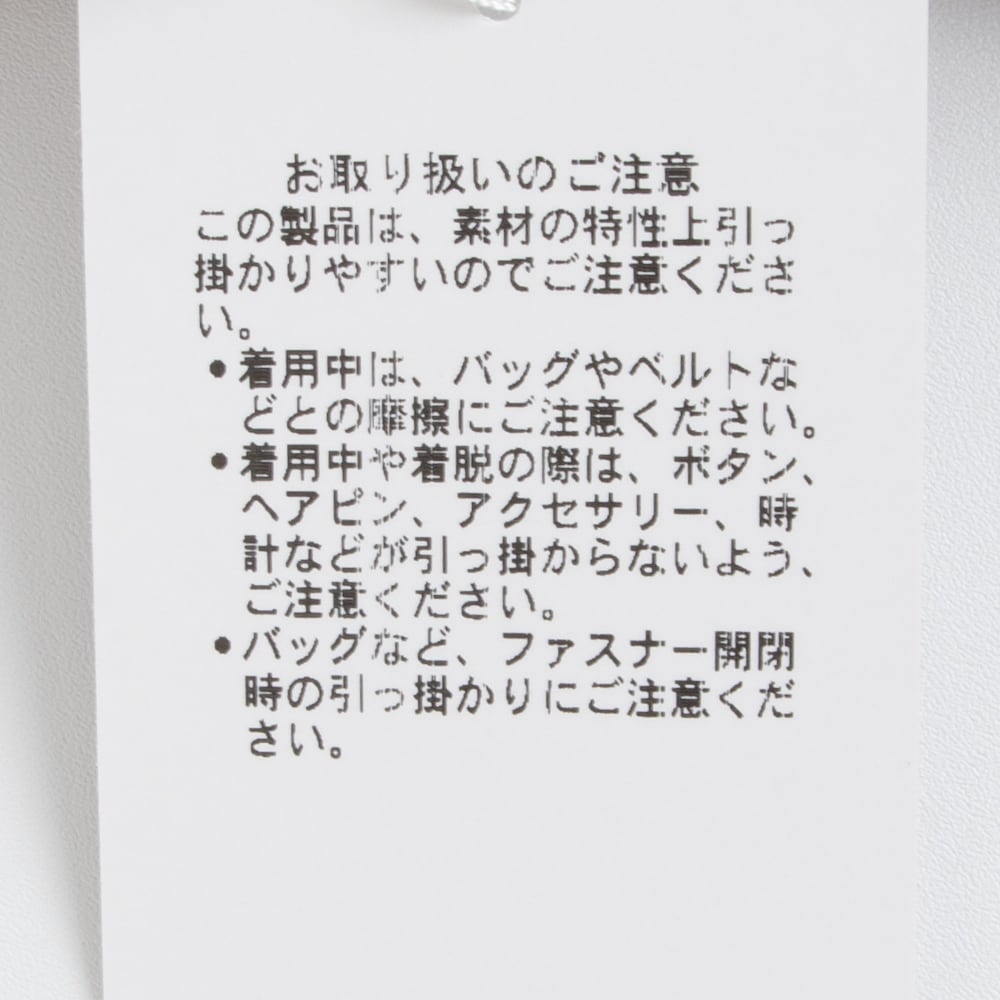 お取り扱いのご注意
この製品は、素材の特性上引っ
掛かりやすいのでご注意くださ
い。
●着用中は、バッグやベルトな
どとの摩擦にご注意ください。
●着用中や着脱の際は、ボタン、
ヘアピン、アクセサリー、時
計などが引っ掛からないよう、
ご注意ください。
●バッグなど、ファスナー開閉
時の引っ掛かりにご注意くだ
さい。